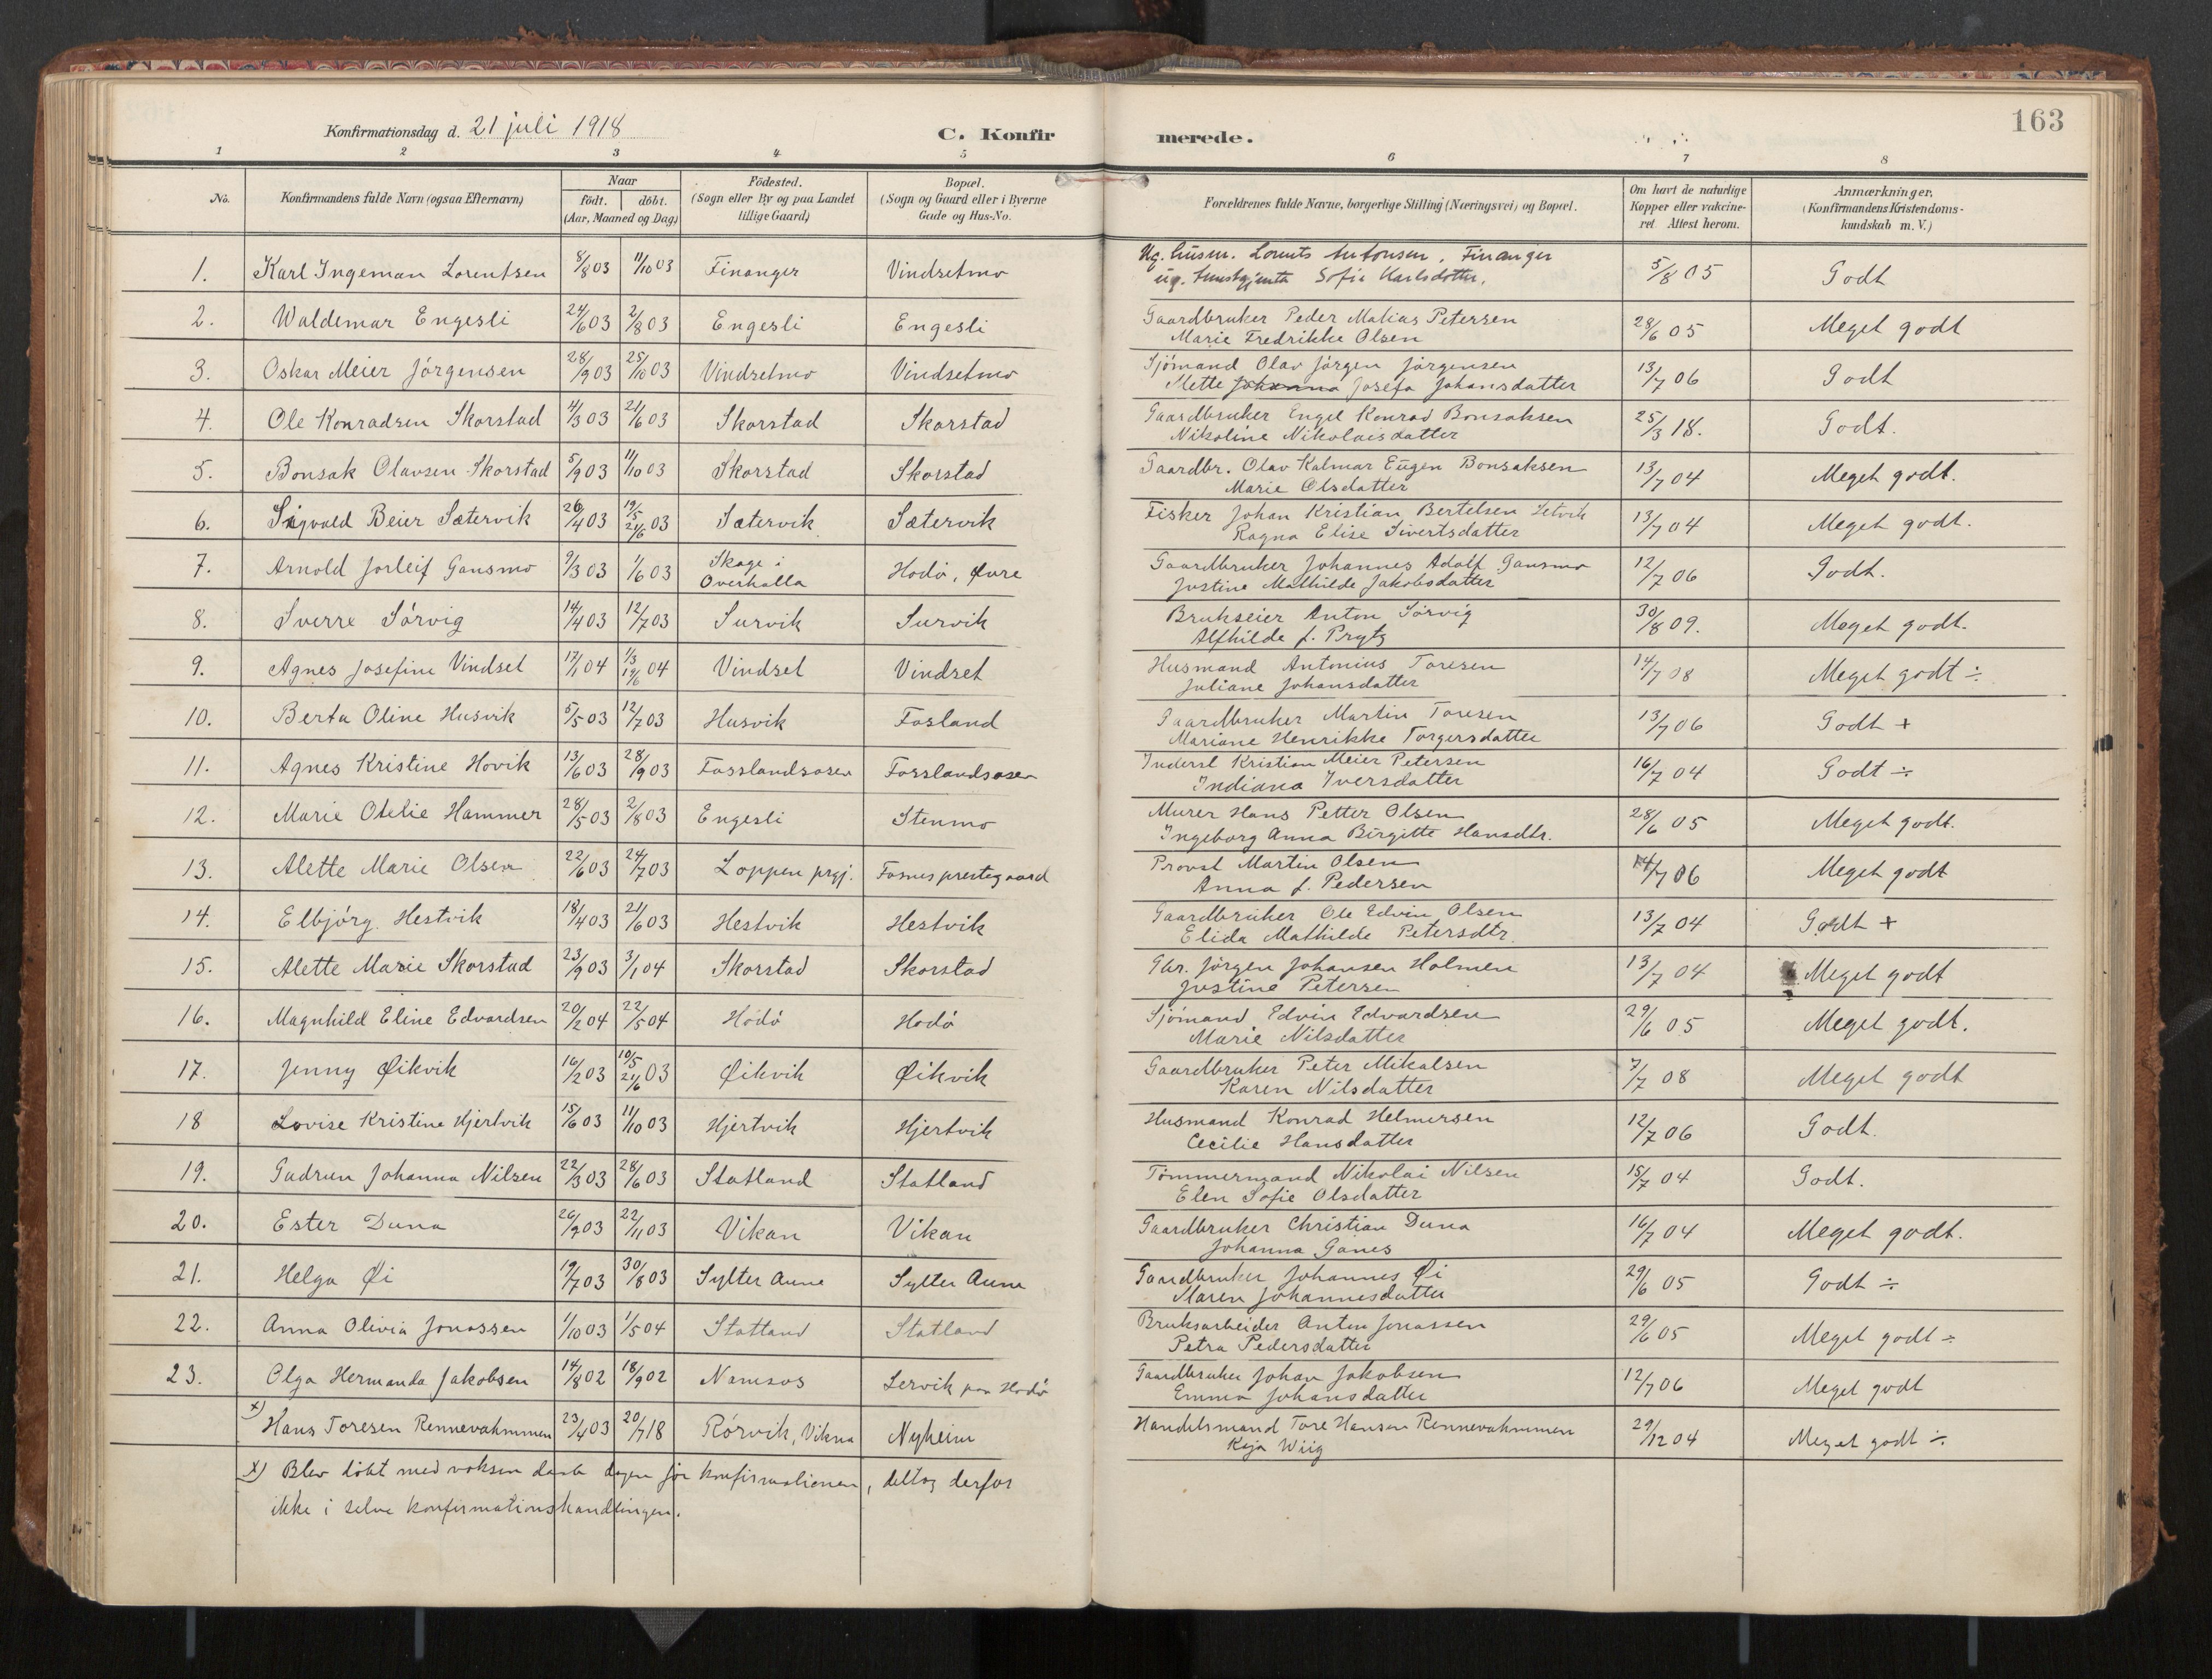 163
Konfirmationsdag d. 21 juli 1918
C. Konfirmerede.
1 2 3 4 5 6 7 8
No. | Konfirmandens fulde Navn (ogsaa Efternavn) | Naar født. døbt. (Aar, Maaned og Dag) | Fødested. (Sogn eller By og paa Landet tillige Gaard) | Bopæl. (Sogn og Gaard eller i Byerne Gade og Hus-No. | Forældrenes fulde Navne, borgerlige Stilling (Næringsvei) og Bopæl. | Om havt de naturlige Kopper eller vakcineret Attest herom. | Anmærkninger. (Konfirmandens Kristendomskundskab m. V.)
1. Karl Ingeman Lorentsen 8/8 03 11/10 03 Finanger Vindsetmo Ug. husm. Lorents Antonsen, Finanger 5/8 05 Godt
ug. Sofie Karlsdotter.
2. Waldemar Engesli 24/6 03 2/8 03 Engesli Engesli Gaardbruker Peder Matias Petersen 28/6 05 Meget godt
Marie Fredrikke Olsen
3. Oskar Meier Jörgensen 28/9 03 25/10 03 Vindsetmo Vindsetmo Sjömand Olav Jörgen Jörgensen 13/7 06 Godt
Mette Johanna Josefa Johansdatter
4. Ole Konradsen Skorstad 4/3 03 21/6 03 Skorstad Skorstad Gaardbruker Engel Konrad Bonsaksen 25/3 18. Godt.
Nikoline Nikolaisdatter
5. Bonsak Olavsen Skorstad 5/9 03 11/10 03 Skorstad Skorstad Gaardbr. Olav Kalmar Eugen Bonsaksen 13/7 04 Meget godt.
Marie Olsdatter
6. Sigvald Beier Sætervik 26/4 03 19/5 21/6 03 Sætervik Sætervik Fisker Johan Kristian Bertelsen Setvik 13/7 04 Meget godt.
Ragna Elise Sivertsdatter
7. Arnold Jorleif Gansmo 9/3 03 1/6 03 Skage i Overhalla Hodö, Øvre Gaardbruker Johannes Adolf Gansmo 12/7 06 Godt.
Justine Mathilde Jakobsdatter
8. Sverre Sörvig 14/4 03 12/7 03 Survik Survik Brukseier Anton Sörvig 30/8 09. Meget godt.
Alfhilde f. Prytz
9. Agnes Josefine Vindset 17/1 04 1/3 19/6 04 Vindset Vindset Husmand Antonius Toresen 14/7 08 Meget godt ÷
Juliane Johansdatter
10. Berta Oline Husvik 5/5 03 12/7 03 Husvik Fosland Gaardbruker Martin Toresen 13/7 06 Godt +
Mariane Henrikke Torgersdatter
11. Agnes Kristine Hovik 13/6 03 28/9 03 Fosslandsosen Fosslandsosen Inderst Kristian Meier Petersen 16/7 04 Godt ÷
Indiana Iversdatter
12. Marie Otelie Hammer 28/5 03 2/8 03 Engesli Stenmo Murer Hans Petter Olsen 28/6 05 Meget godt.
Ingeborg Anna Birgitte Hansdtr.
13. Alette Marie Olsen 22/6 03 24/7 03 Loppen prgj. Fosnes prestegaard Provst Martin Olsen 14/7 06 Meget godt
Anna f. Pedersen
14. Elbjörg Hestvik 18/4 03 21/6 03 Hestvik Hestvik Gaardbruker Ole Edvin Olsen 13/7 04 Godt +
Elida Mathilde Petersdtr.
15. Alette Marie Skorstad 23/9 03 3/1 04 Skorstad Skorstad Gbr. Jörgen Johansen Holmen 13/7 04 Meget godt
Justine Petersen
16. Magnhild Eline Edvardsen 20/2 04 22/5 04 Hodö Hodö Sjömand Edvin Edvardsen 29/6 05 Meget godt.
Marie Nilsdatter
17. Jenny Øikvik 16/2 03 10/5 21/6 03 Øikvik Øikvik Gaardbruker Peter Mikalsen 7/7 08 Meget godt
Karen Nilsdatter
18 Lovise Kristine Hjertvik 15/6 03 11/10 03 Hjertvik Hjertvik Husmand Konrad Helmersen 12/7 06 Godt.
Cecilie Hansdatter
19. Gudrun Johanna Nilsen 22/3 03 28/6 03 Statland Statland Tömmermand Nikolai Nilsen 15/7 04 Godt.
Elen Sofie Olsdatter
20. Ester Duna 26/9 03 22/11 03 Vikan Vikan Gaardbruker Christian Duna 16/7 04 Meget godt.
Johanna Ganes
21. Helga Øi 19/7 03 30/8 03 Sylter Aune Sylter Aune Gaardbruker Johannes Øi 29/6 05 Godt ÷
Maren Johannesdatter
22. Anna Olivia Jonassen 1/10 03 1/5 04 Statland Statland Bruksarbeider Anton Jonassen 29/6 05 Meget godt ÷
Petra Pedersdatter
23. Olga Hermanda Jakobsen 14/8 02 18/9 02 Namsos Lervik paa Hodö Gaardbruker Johan Jakobsen 12/7 06 Meget godt
Emma Johansdatter
x) Hans Toresen Rennevahmmen 23/4 03 20/7 18 Rörvik, Vikna Nyheim Handelsmand Tore Hansen Rennevahmmen 29/12 04 Meget godt ÷
Keja Wiig
x) Blev döbt med voksen daab dagen för konfirmationen, deltog derfor
ikke i selve konfirmationshandlingen.